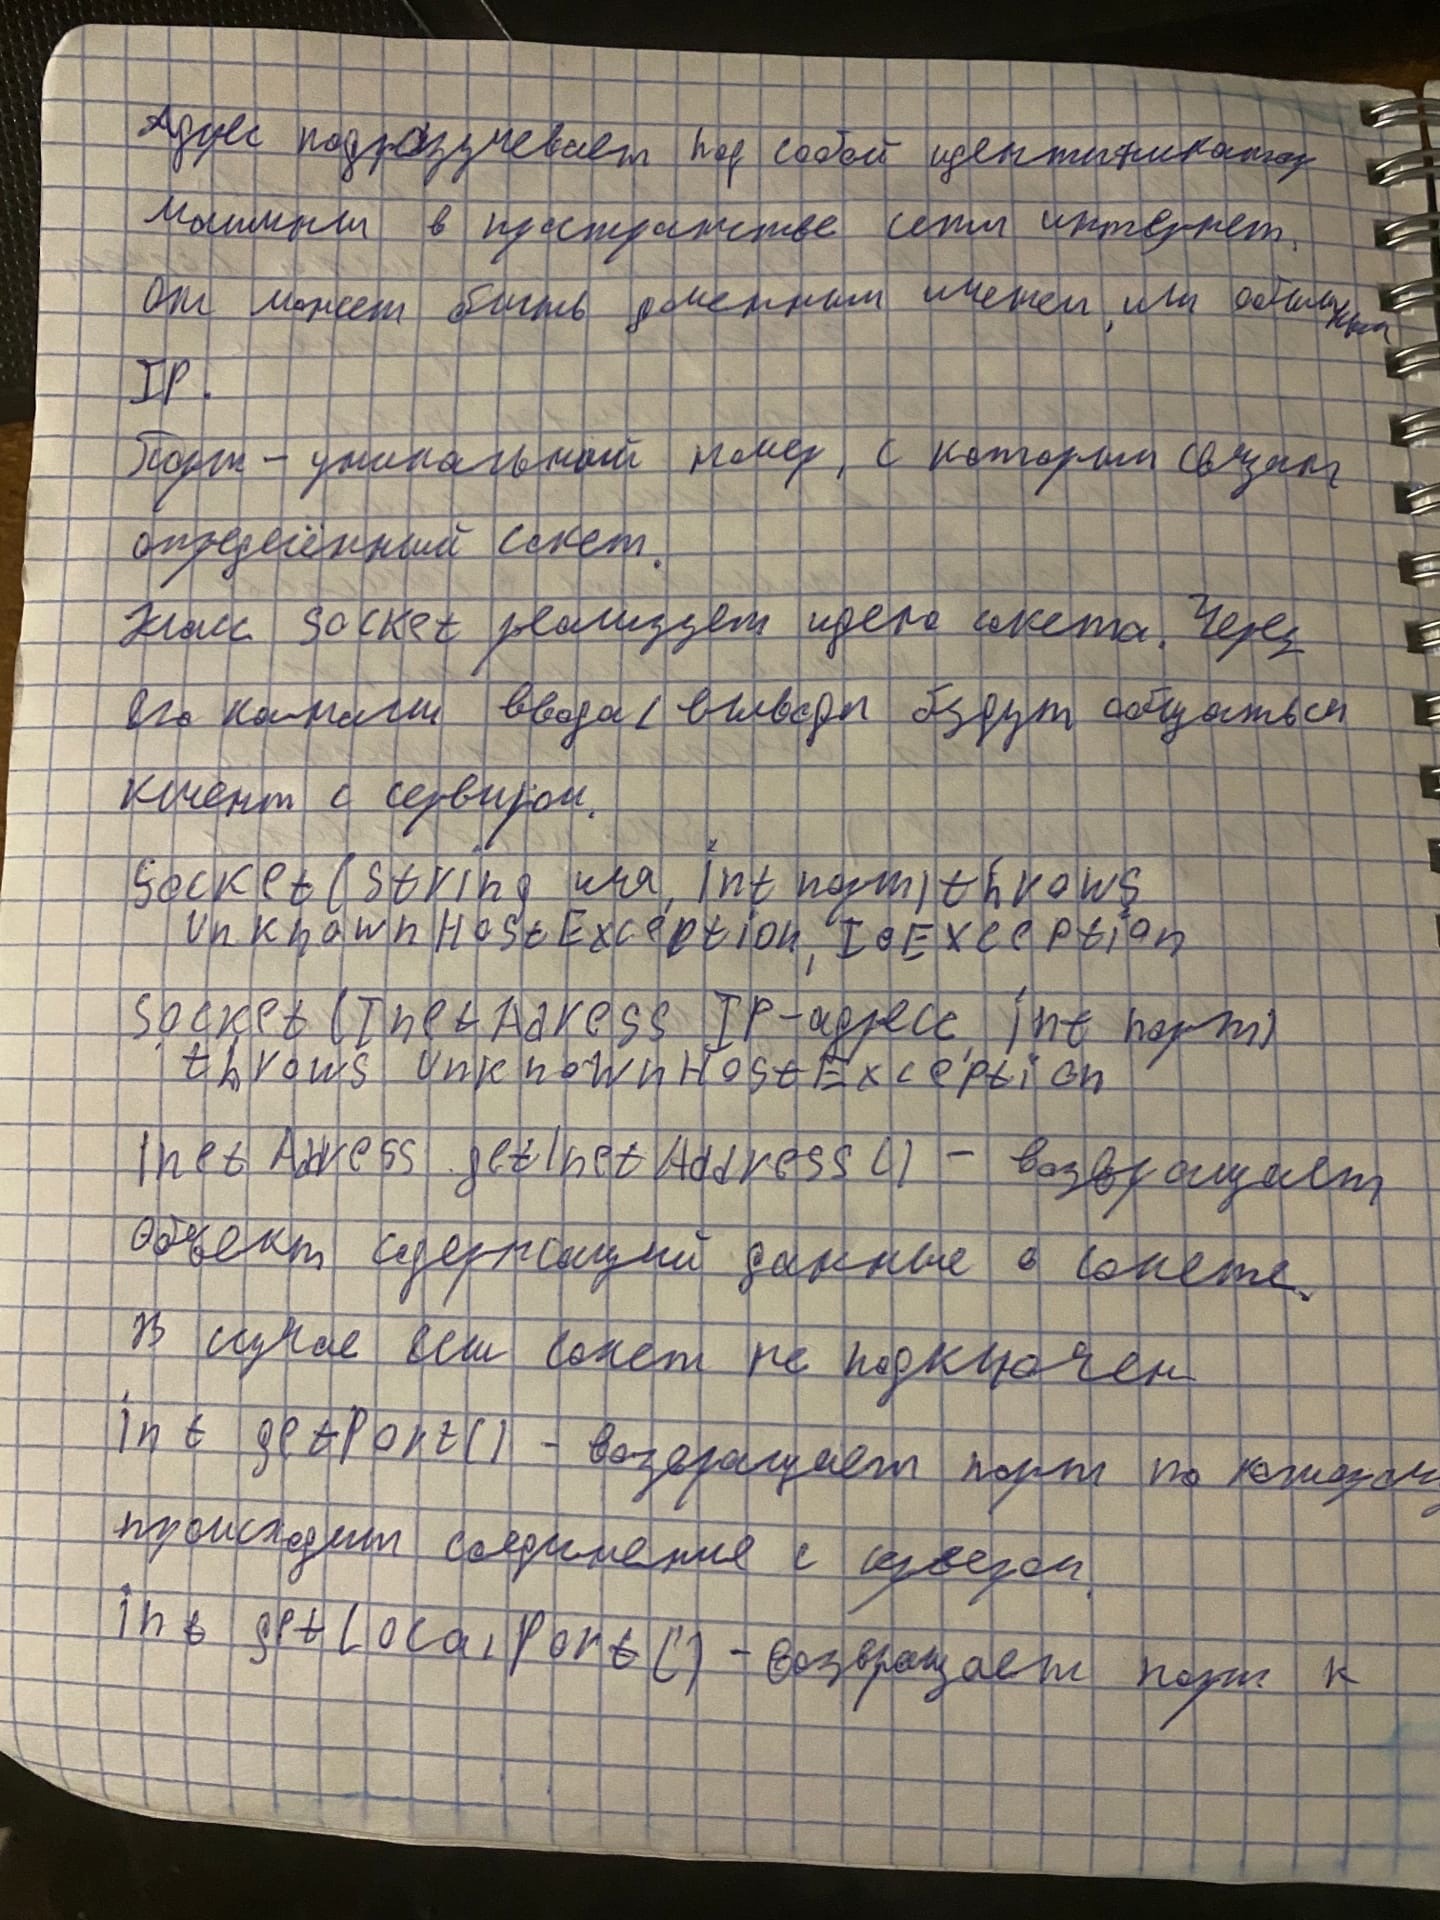 Адрес подразумевает под собой идентификатор
машины в пространстве сети интернет.
Он может быть доменным именем, или обычным
IP.
Порт - уникальный номер, с которым связан
определённый сокет.
Класс Socket реализует идею сокета. Через
его каналы ввода/вывода будут общаться
клиент с сервером.
Socket(String имя, int порт) throws
UnknownHostException, IOException
Socket(InetAdress IP-адресс, int порт)
throws UnknownHostException
InetAdress getInetAddress() - возвращает
объект содержащий данные о сокете.
В случае если сокет не подключен
int getPort() - возвращает порт по которому
происходит соединение с сервером.
int getLocalPort() - возвращает порт к